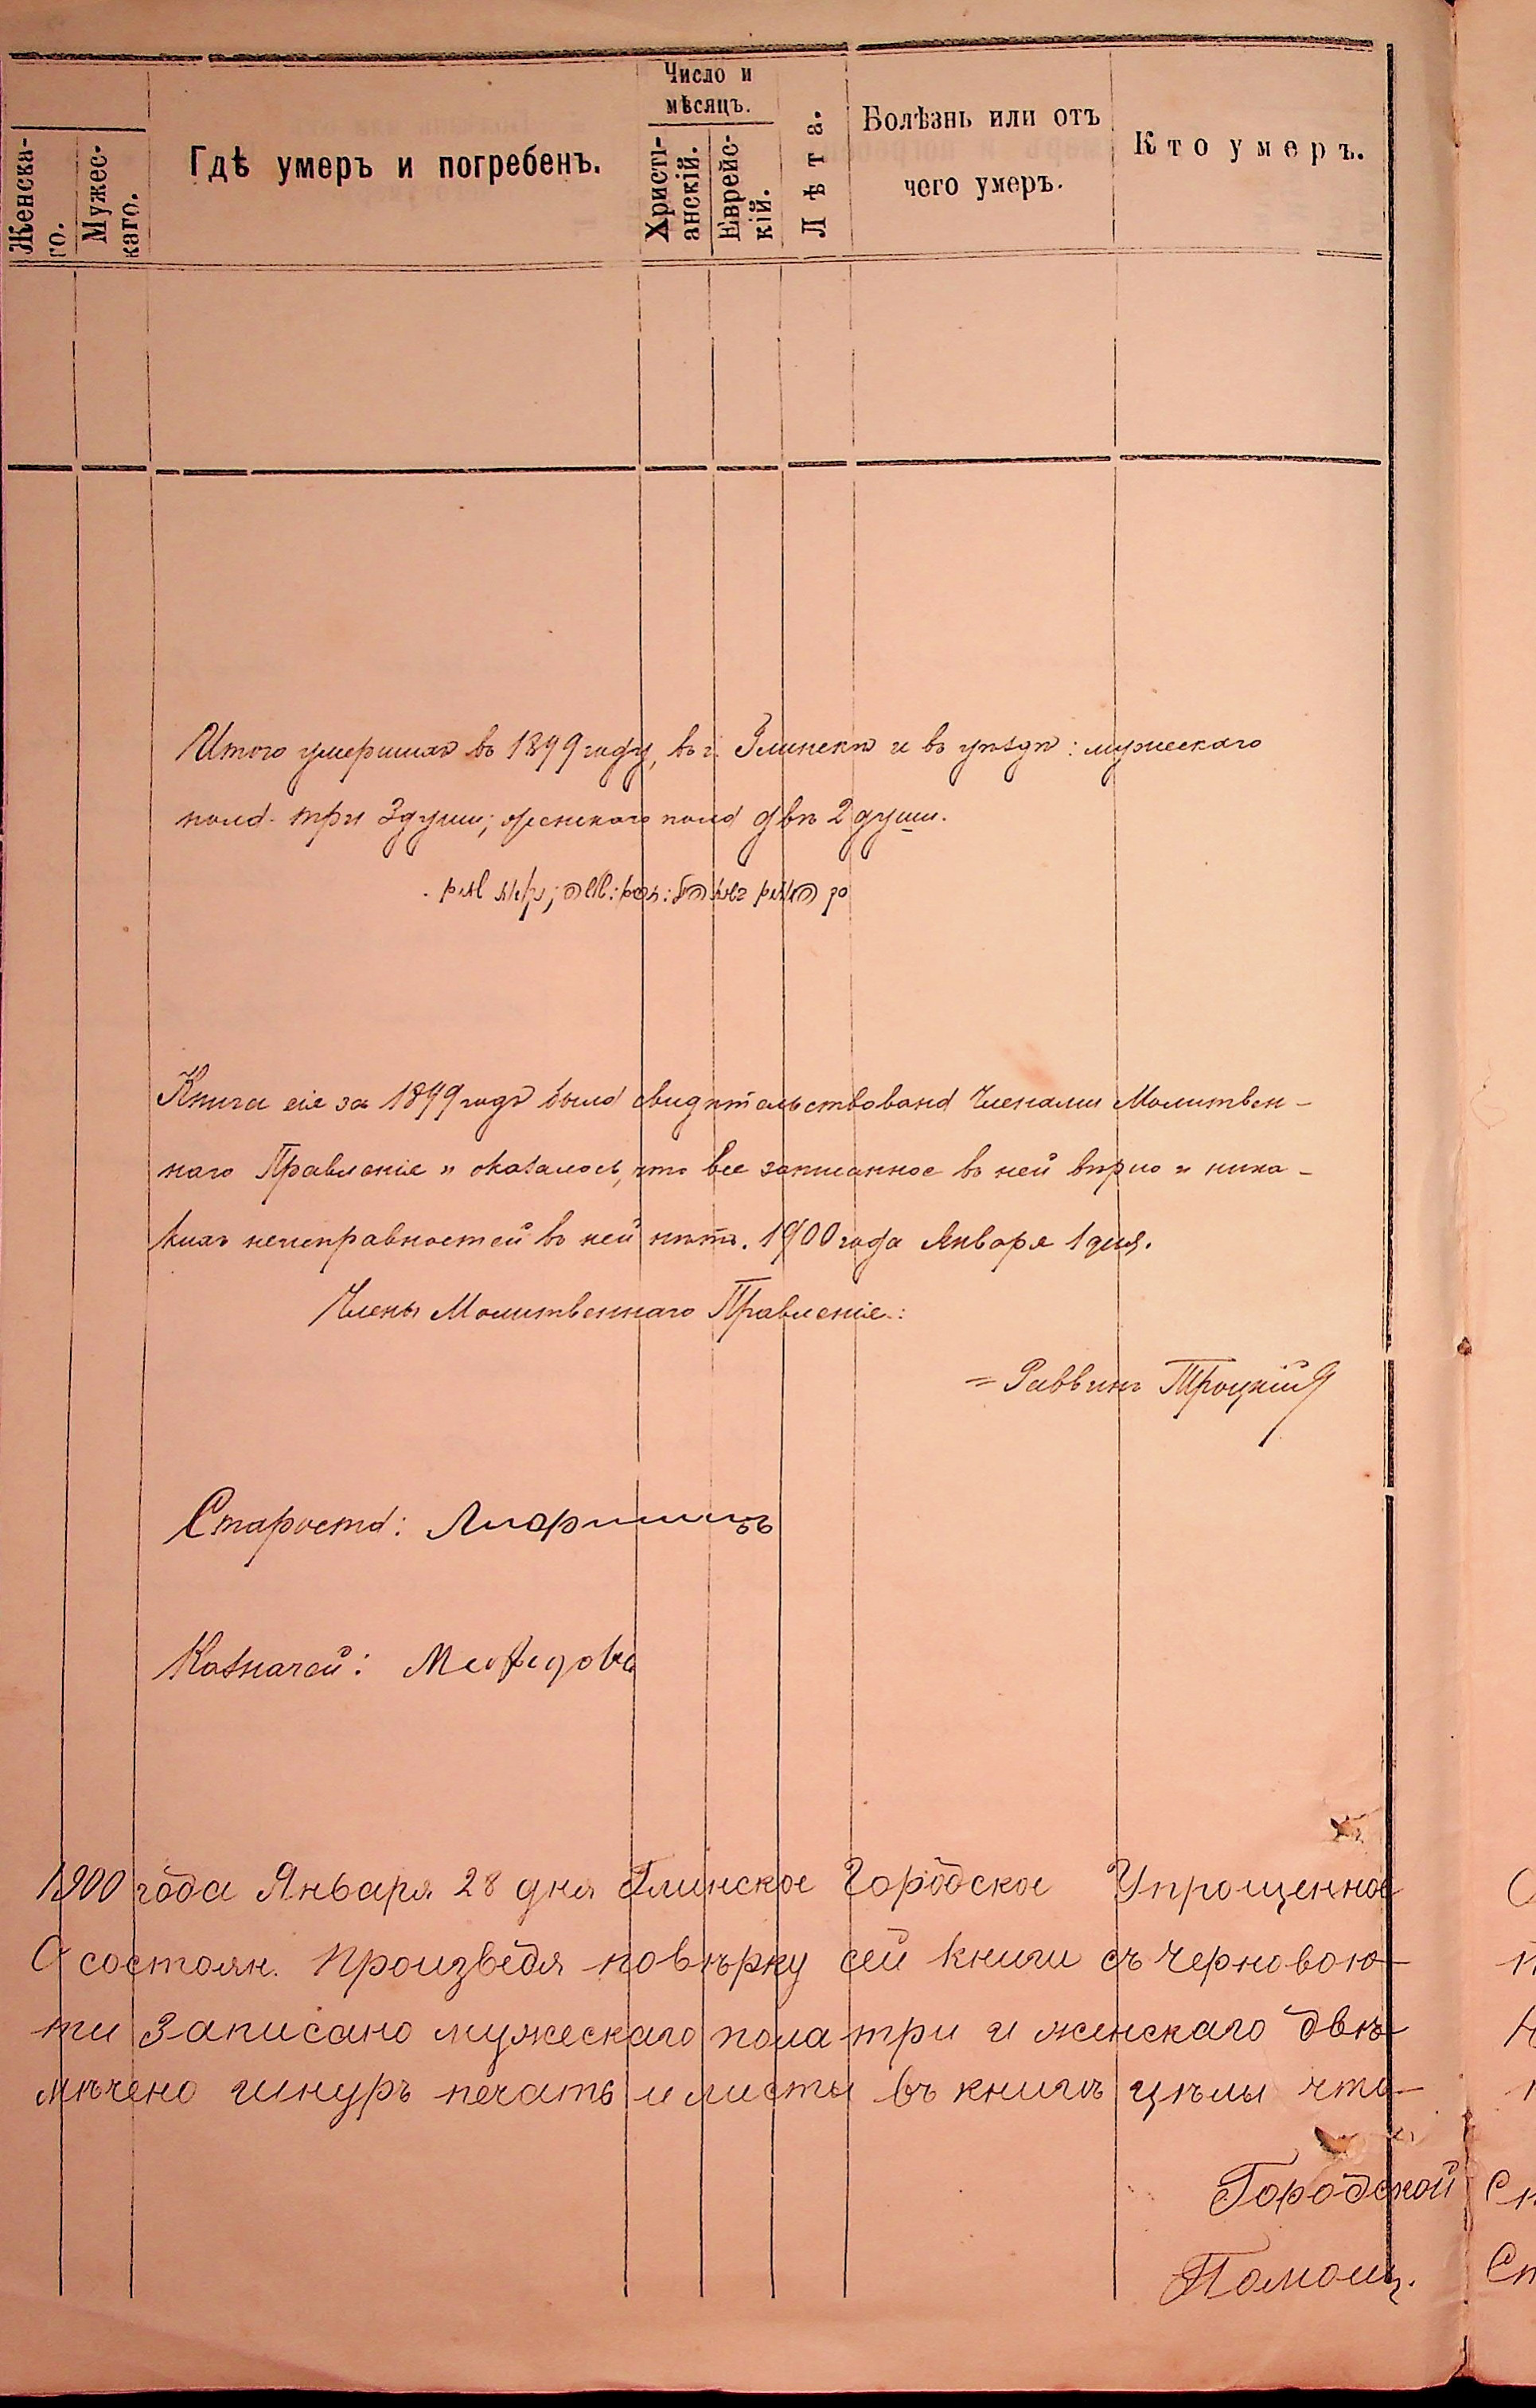 Женска-
го.
Мужес-
каго.
Гдѣ умеръ и погребенъ.
Число и
мѣсяцъ.
Христі-
анскій.
Еврейс-
кій.
Лѣта.
Болѣзнь или отъ
чего умеръ.
Кто умеръ.
Итого умершихъ въ 1899 году, въ г. Глинскѣ и въ уѣздѣ: мужескаго
пола три 3 души; женскаго пола двѣ 2 души.
Книга сіе за 1899 годъ была свидѣтельствована Членами Молитвен-
наго Правленіе и оказалось, что все записанное въ ней вѣрно и ника-
кихъ неисправностей въ ней нѣтъ. 1900 года Января 1 дня.
Члены Молитвеннаго Правленіе:
= Раввинъ Троцкій
Староста:
Казначей:
1900 года Января 28 дня Глинское Городское Упрощенное
О состоян. Произведя повѣрку сей книги съ черновою
ти записано мужескаго пола три и женскаго двѣ
мѣчено шнуръ печать и листы въ книгѣ цѣлы что
Городской
Помощ.